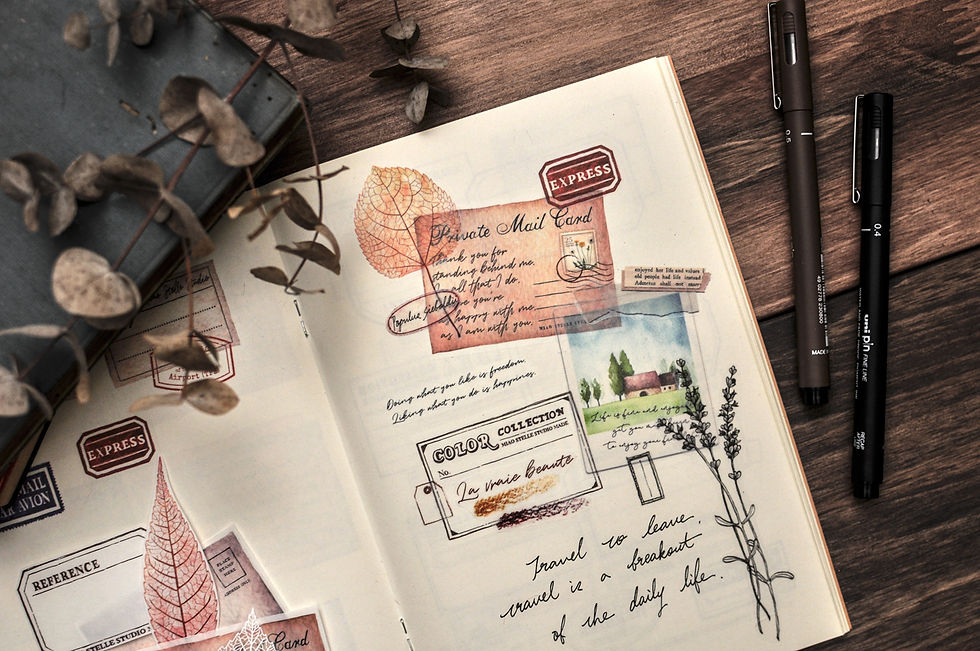 EXPRESS
MAIL
PAR AVION
REFERENCE
STELLE STUDIO
PLACE
STAMP
HERE
Card
Airport
EXPRESS
Private Mail Card
Thank you for
standing behind me.
all that I do.
you're
happy with me
as I am with you.
MIAO STELLE
enjoyed her life and values
old people had life instead
Admetus shall not
Doing what you like is freedom.
Liking what you do is happiness.
COLOR COLLECTION
MIAO STELLE STUDIO MADE.
No.
La vraie Beauté
Life is fine and enjoy
to enjoy your
Travel to leave,
travel is a breakout
of the daily life.
0.5
MADE
0.4
uni pin FINE LINE